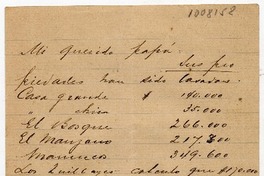 1008152
Mi querido papá:
Sus pro
piedades han sido tasadas:
Casa grande $ 190.000
" chica 35.000
El Bosque 266.000
El Manzano 217.300
349.600
Los Quillayes calculo que $